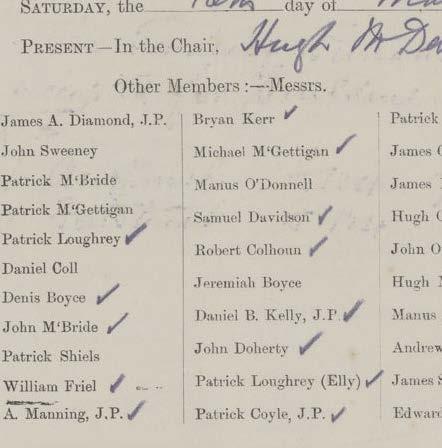 SATURDAY, the day of
PRESENT—In the Chair, Hugh
Other Members:—Messrs.
James A. Diamond, J.P.
John Sweeney
Patrick M‘Bride
Patrick M‘Gettigan
Patrick Loughrey
Daniel Coll
Denis Boyce
John M‘Bride
Patrick Shiels
William Friel
A. Manning, J.P.
Bryan Kerr
Michael M‘Gettigan
Manus O’Donnell
Samuel Davidson
Robert Colhoun
Jeremiah Boyce
Daniel B. Kelly, J.P.
John Doherty
Patrick Loughrey (Elly)
Patrick Coyle, J.P.
Patrick
James
James
Hugh
John O
Hugh
Manus
Andrew
James S
Edward